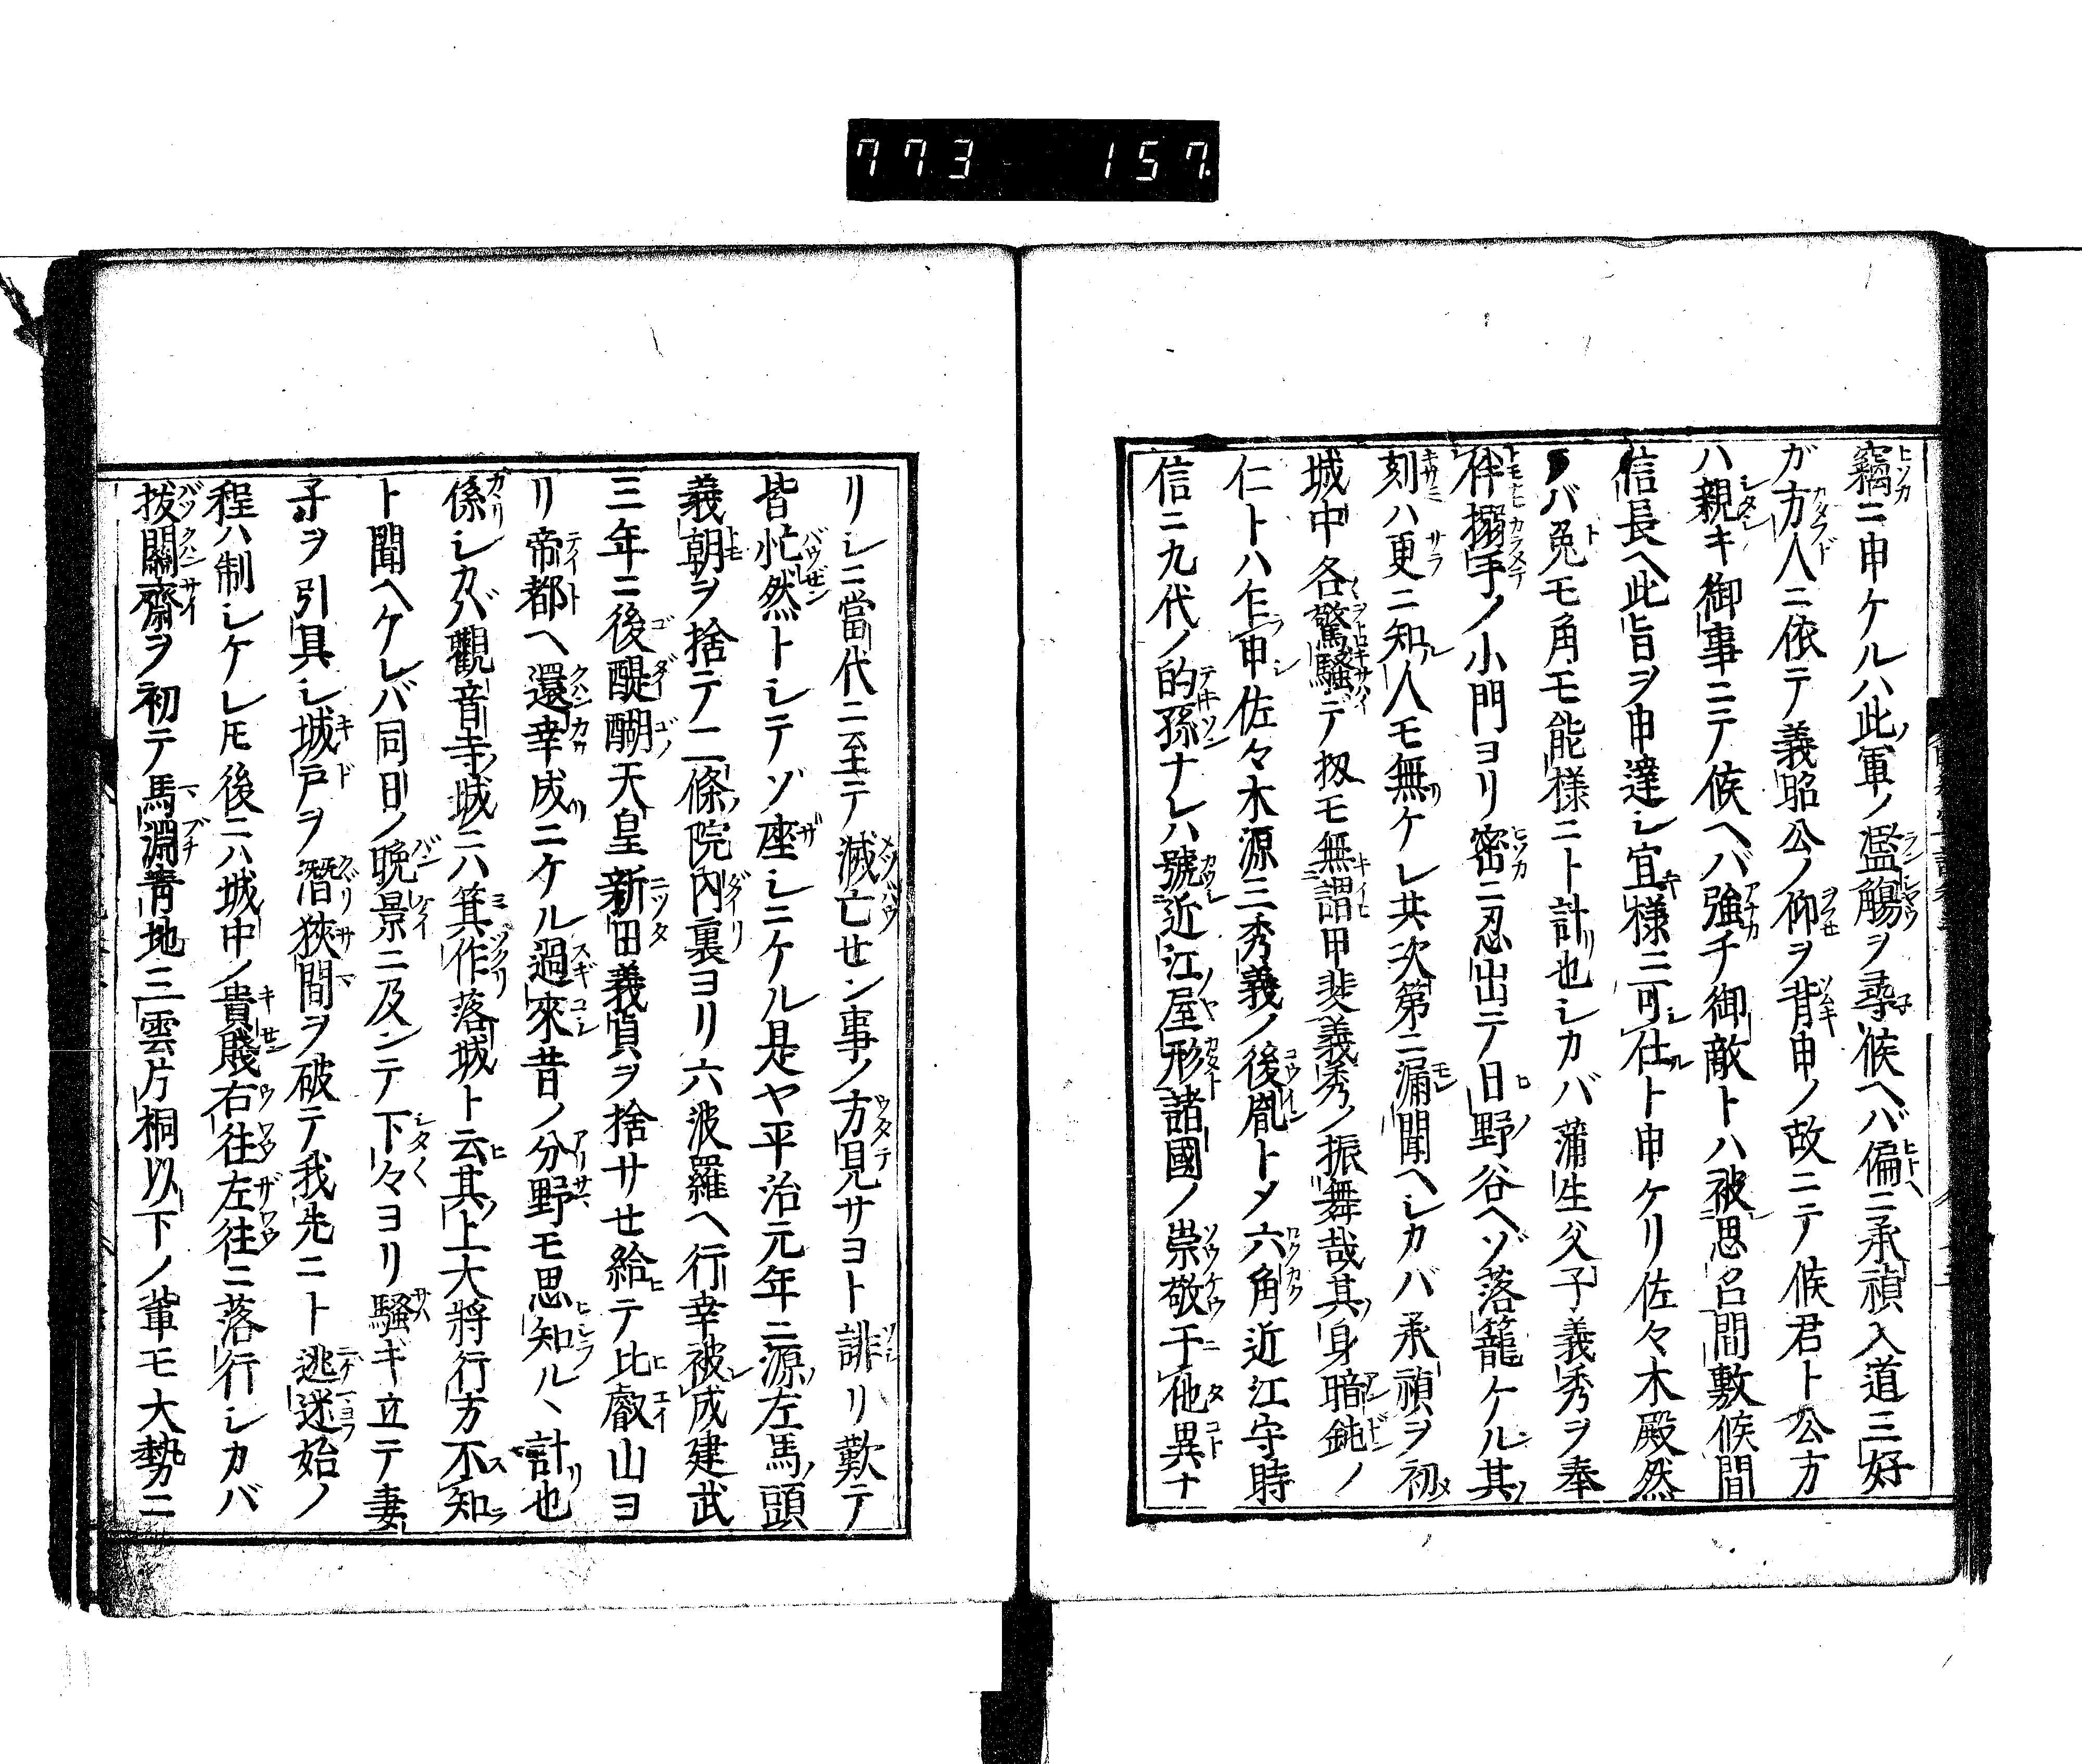 773 157
竊ニ申ケルハ此軍ノ濫觴ヲ尋候ヘバ偏ニ承禎入道三好
ガ方人ニ依テ義昭公ノ仰ヲ背申ノ故ニテ候君ト公方
ハ親キ御事ニテ候ヘバ強チ御敵トハ被思召間敷候間
信長ヘ此旨ヲ申達シ宜様ニ可仕ト申ケリ佐々木殿然
ラバ兎モ角モ能様ニト計也シカバ蒲生父子義秀ヲ奉
伴搦手ノ小門ヨリ密ニ忍出テ日野谷ヘゾ落籠ケル其
刻ハ更ニ知人モ無ケレ共次第ニ漏聞ヘシカバ承禎ヲ初
城中各驚騒デ扨モ無謂甲斐義秀ノ振舞哉其身暗鈍ノ
仁トハ乍申佐々木源三秀義ノ後胤トメ六角近江守時
信ニ九代ノ的孫ナレハ號近江屋形諸國ノ崇敬干他異ナ
リシニ當代ニ至テ滅亡せン事ノ方見サヨト誹リ歎テ
皆忙然トシテゾ座シニケル是ヤ平治元年ニ源左馬頭
義朝ヲ捨テ二條院内裏ヨリ六波羅ヘ行幸被成建武
三年ニ後醍醐天皇新田義貞ヲ捨サせ給テ比叡山ヨ
リ帝都ヘ還幸成ニケル過來昔ノ分野モ思知ル丶計也
係シカバ觀音寺城ニハ箕作落城ト云其上大將行方不知
ト聞ヘケレバ同日ノ晩景ニ及ンテ下々ヨリ騒ギ立テ妻
子ヲ引具シ城戸ヲ潛狹間ヲ破テ我先ニト逃迷始ノ
程ハ制シケレ𪜈後ニハ城中ノ貴賤右往左往ニ落行シカバ
拔關齋ヲ初テ馬淵青地三雲片桐以下ノ輩モ大勢ニ